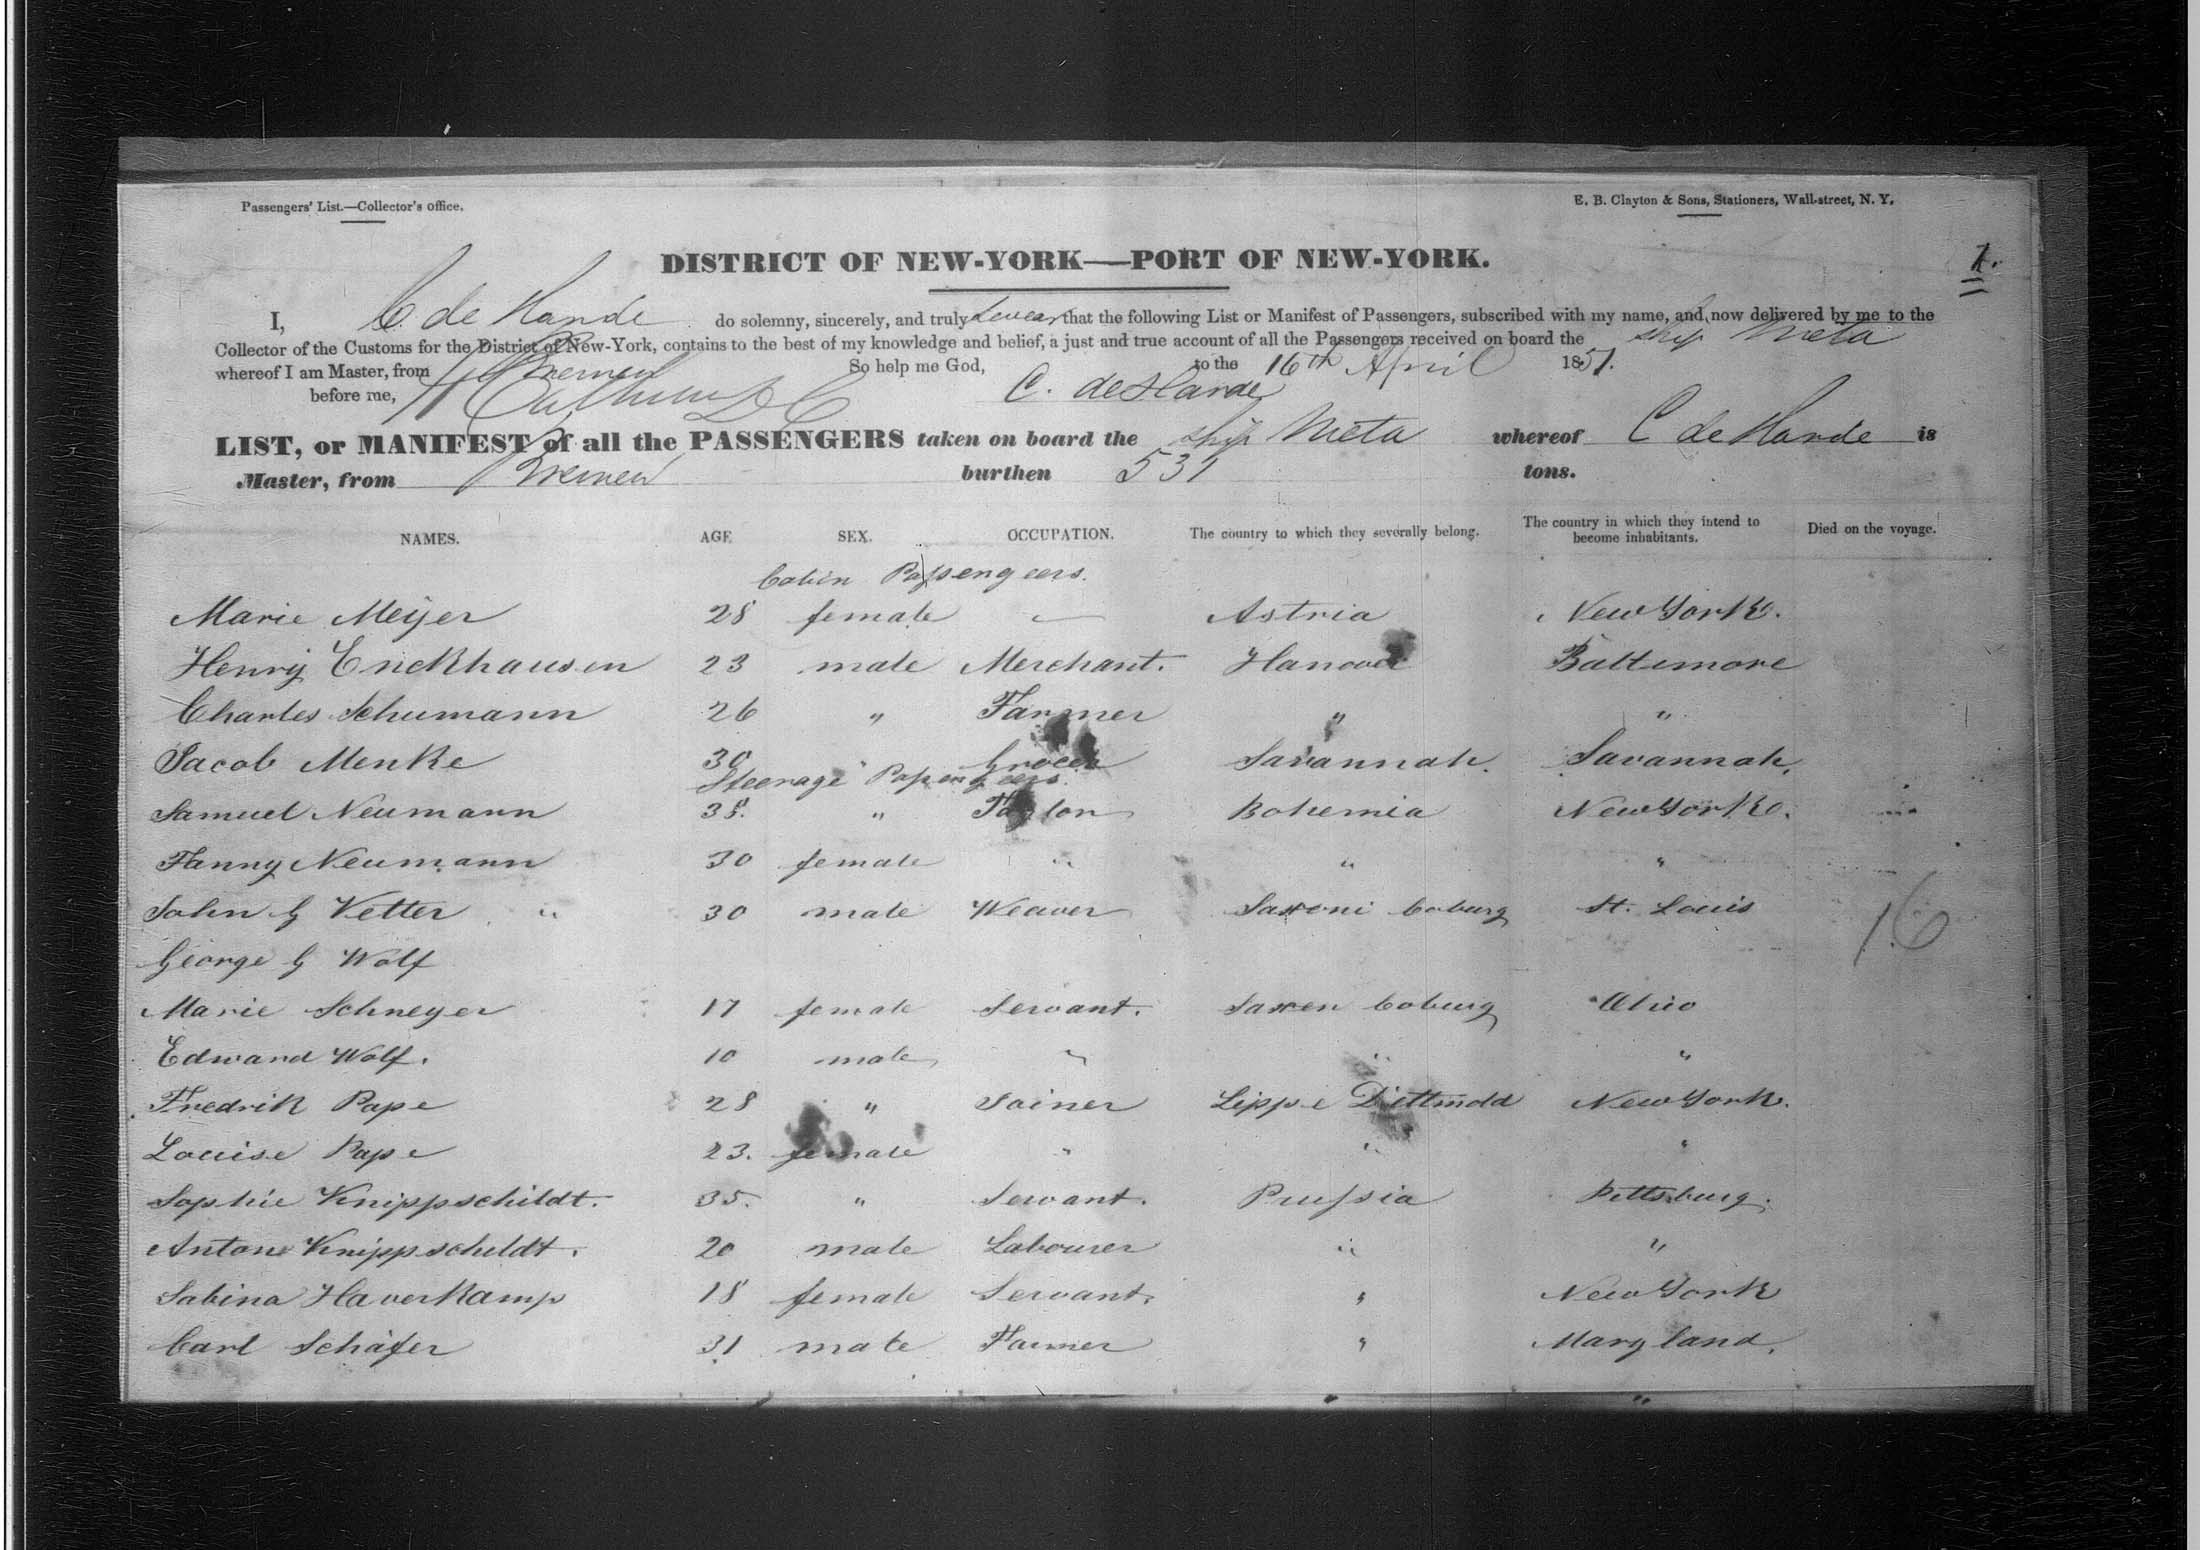 Passengers' List.—Collector's office.
E. B. Clayton & Sons, Stationers, Wall-street, N. Y.
DISTRICT OF NEW-YORK—PORT OF NEW-YORK.
1.
I, C. de Harde do solemny, sincerely, and truly swear that the following List or Manifest of Passengers, subscribed with my name, and now delivered by me to the
Collector of the Customs for the District of New-York, contains to the best of my knowledge and belief, a just and true account of all the Passengers received on board the ship Meta
whereof I am Master, from Bremen So help me God, to the 16th April 1851.
before me, C. de Harde
LIST, or MANIFEST of all the PASSENGERS taken on board the ship Meta whereof C de Harde is
Master, from Bremen burthen 531 tons.
NAMES. AGE SEX. OCCUPATION. The country to which they severally belong. The country in which they intend to become inhabitants. Died on the voyage.
Cabin Passengers.
Marie Meijer 28 female — Astria New York.
Henry Enckhausen 23 male Merchant. Hanover Baltimore
Charles Schumann 26 " Farmer " "
Jacob Menke 30 " Grocer Savannah. Savannah.
Steerage Passengeers.
Samuel Neumann 38. " Taylor Bohemia New York.
Fanny Neumann 30 female " " "
John G Vetter " 30 male Weaver Saxoni Coburg St. Louis
George G Wolf
16
Marie Schneyer 17 female Servant. Saxen Coburg Ohio
Edward Wolf. 10 male " " "
Fredrik Pape 28 " Joiner Lippe Dettmold New York.
Louise Pape 23. female " " "
Sophie Knippschildt. 35. " Servant. Prussia Pittsburg.
Antone Knippschildt. 20 male Labourer " "
Sabina Haverkamp 18 female Servant. " New York
Carl Schäfer 31 male Farmer " Maryland.
" "